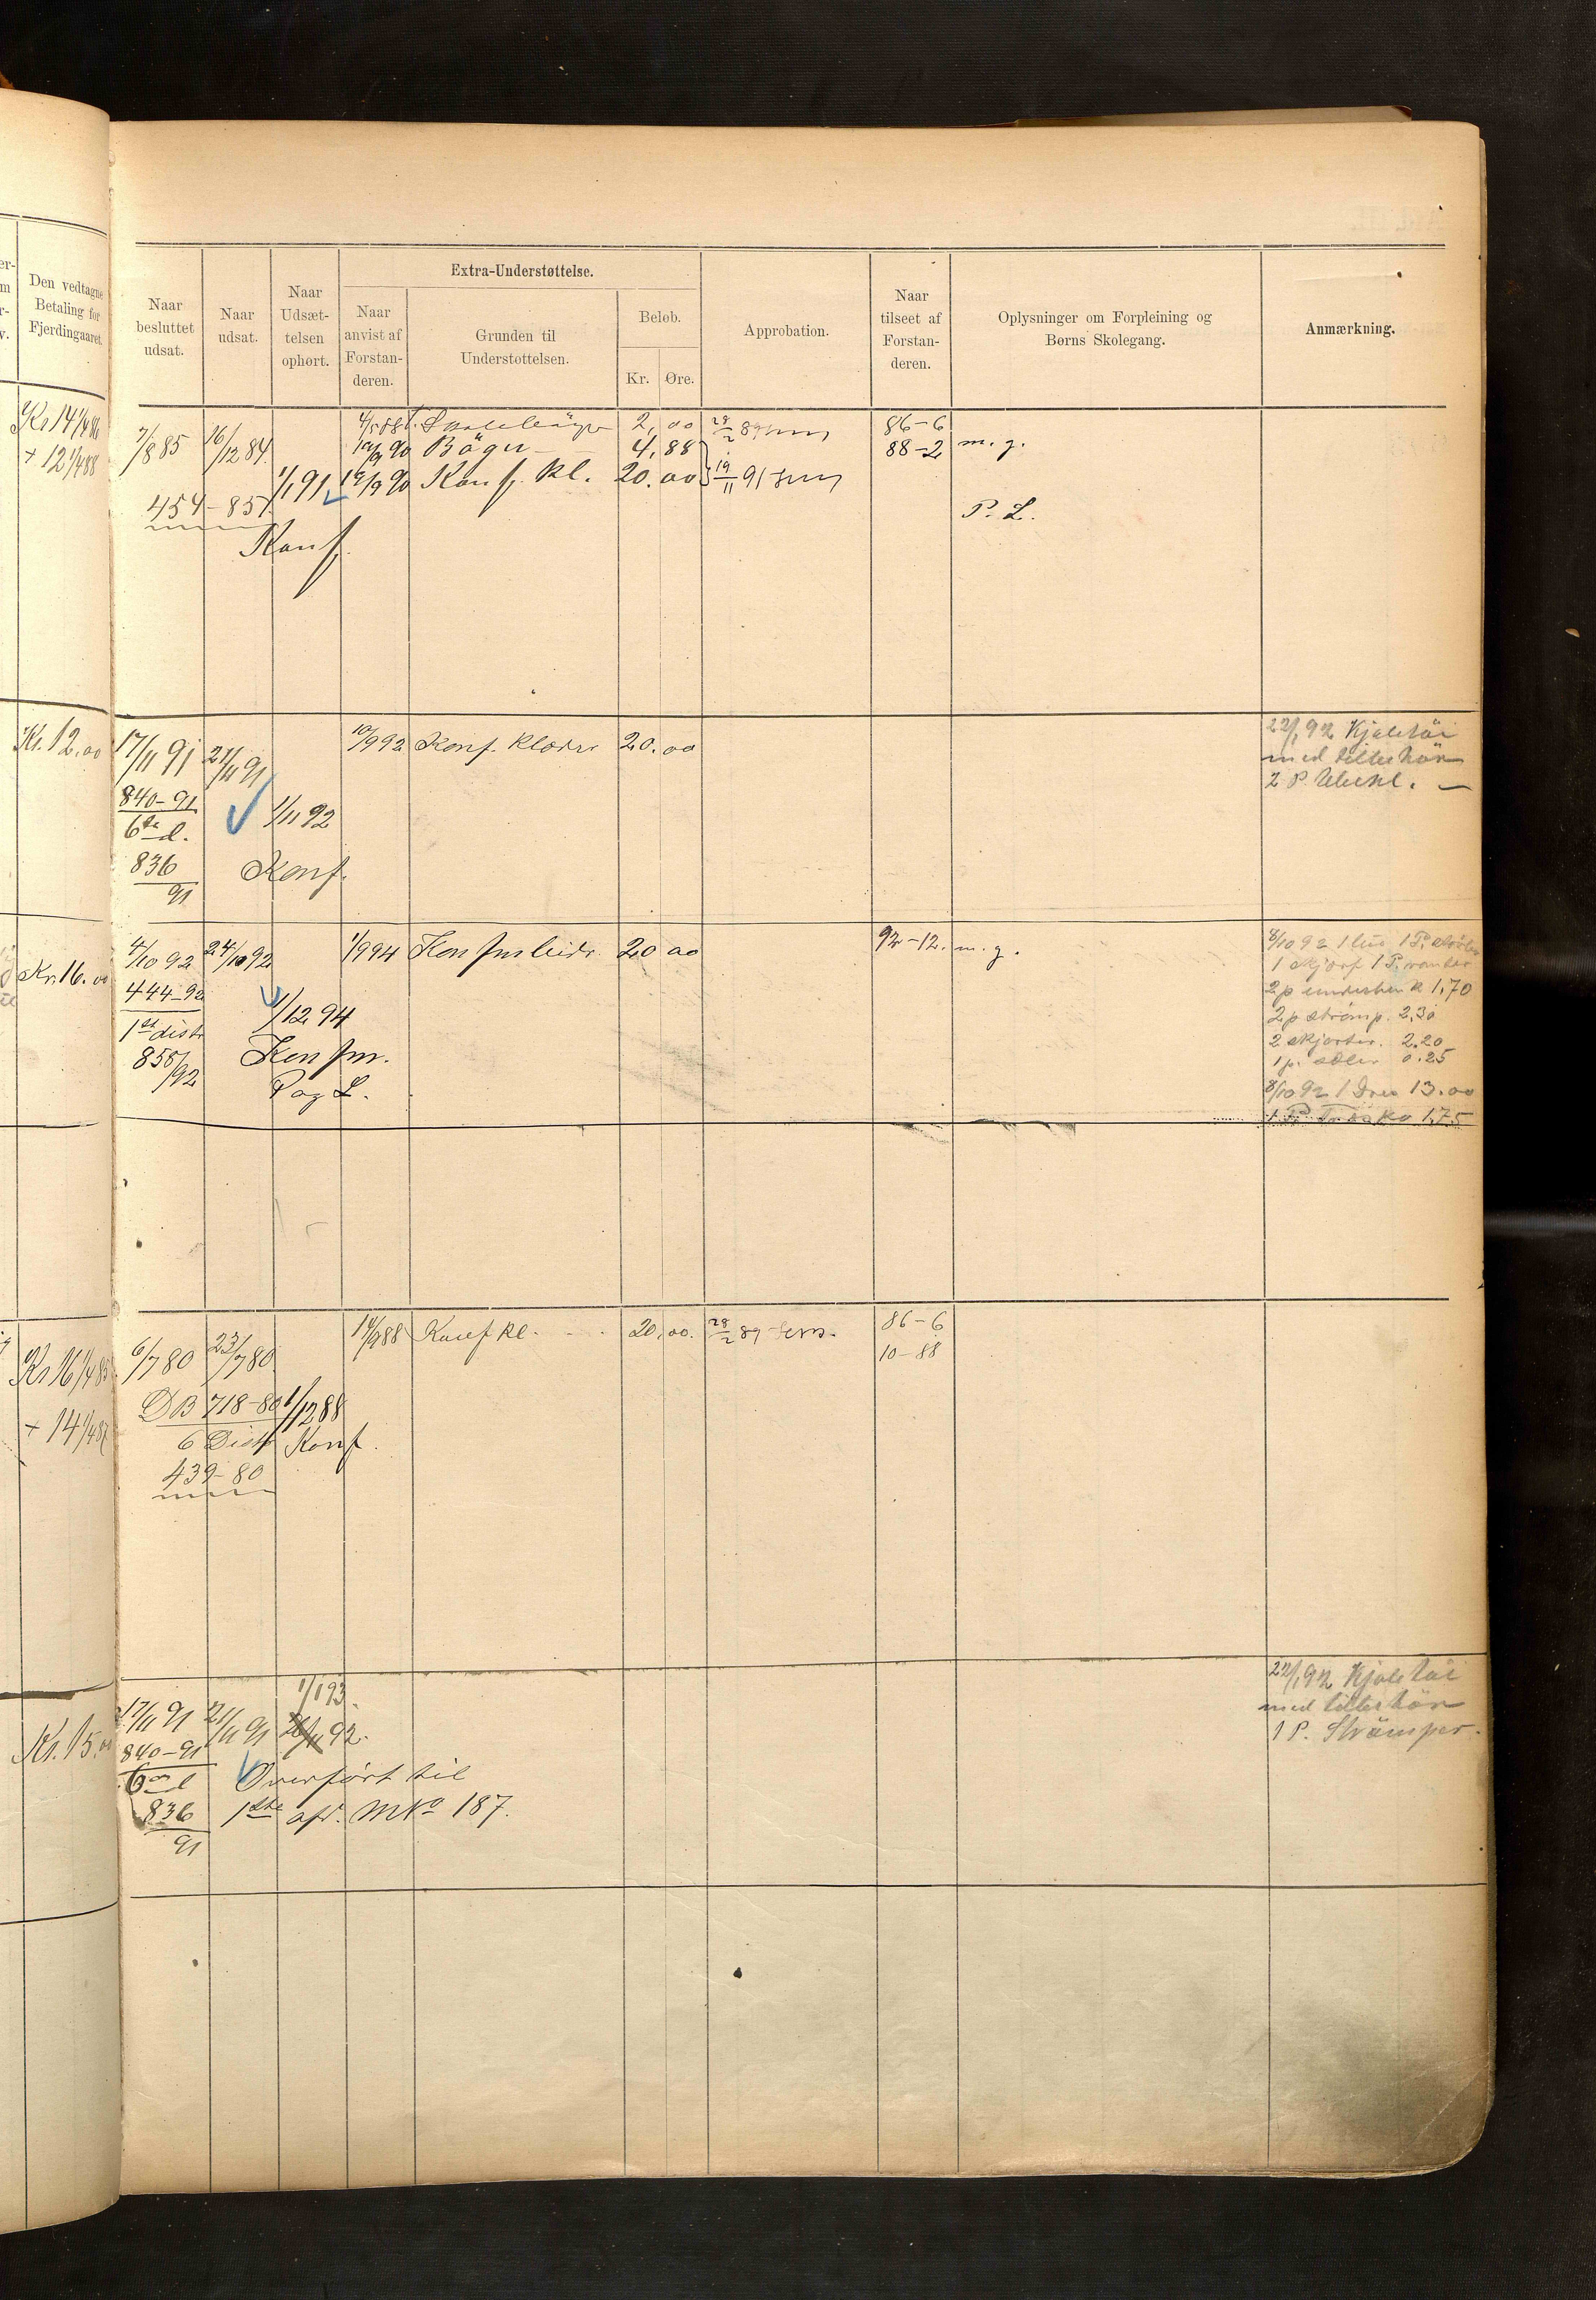 Den vedtagne
Betaling for
Fjerdingaaret.
Naar
besluttet
udsat.
Naar
udsat.
Naar
Udsæt-
telsen
ophørt.
Extra-Understøttelse.
Naar
anvist af
Forstan-
deren.
Grunden til
Understøttelsen.
Beløb.
Kr. Øre.
Approbation.
Naar
tilseet af
Forstan-
deren.
Oplysninger om Forpleining og
Børns Skolegang.
Anmærkning.
Kr 14 1/4 86
+ 12 1/4 88
7/8 85 16/12 84
2,00 28/2 89 86-6
90 Bøger 4,88 88-2 m. g.
1/1 91 19/9 90 Konf. kl. 20.00 19/11 91
454-85
Konf.
P. L.
Kr. 12.00
17/11 91 21/11 91 10/9 92 Konf. klæder 20.00
840-91
6te d.
1/11 92
836
91
Konf.
22/1 92 Kjoletøi
med tilbehør
2 P.
Kr. 16.00
4/10 92 24/10 92 1/9 94 20 00 92-12. m. g.
444-92
1st distr
1/12 94
858/92
Konfm.
P og L.
8/10 92 1 1 P. støvler
1 skjørt 1 P. vanter
2 p 1,70
2 p strømp. 2,30
2 skjorter. 2.20
1 p. 0.25
8/10 92 1 Dres 13.00
1 P. Træsko 1,75
Kr 16 1/4 85
+ 14 1/4 87
6/7 80 23/7 80 14/9 88 Konf kl. 20.00. 28/2 89 86-6
10-88
DB 718-80 1/12 88
6 Distr Konf.
439-80
Kr. 15.00
1/1 93
17/11 91 21/11 91 92.
840-91
6 d Overført til
836 1ste afd. No 187.
91
22/1 92 Kjoletøi
med tilbehør
1 P. Strømper.